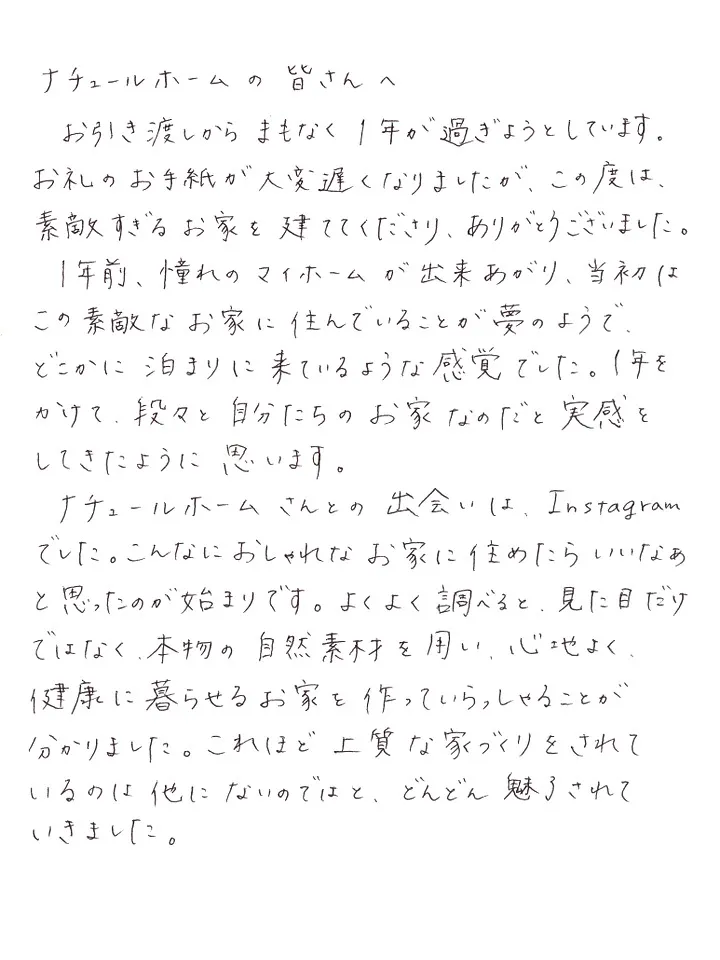 ナチュールホームの皆さんへ
お引き渡しからまもなく1年が過ぎようとしています。
お礼のお手紙が大変遅くなりましたが、この度は、
素敵すぎるお家を建ててくださり、ありがとうございました。
1年前、憧れのマイホームが出来あがり、当初は
この素敵なお家に住んでいることが夢のようで、
どこかに泊まりに来ているような感覚でした。1年を
かけて、段々と自分たちのお家なのだと実感を
してきたように思います。
ナチュールホームさんとの出会いは、Instagram
でした。こんなにおしゃれなお家に住めたらいいなぁ
と思ったのが始まりです。よくよく調べると、見た目だけ
ではなく、本物の自然素材を用い、心地よく、
健康に暮らせるお家を作っていらっしゃることが
分かりました。これほど上質な家づくりをされて
いるのは他にないのではと、どんどん魅了されて
いきました。